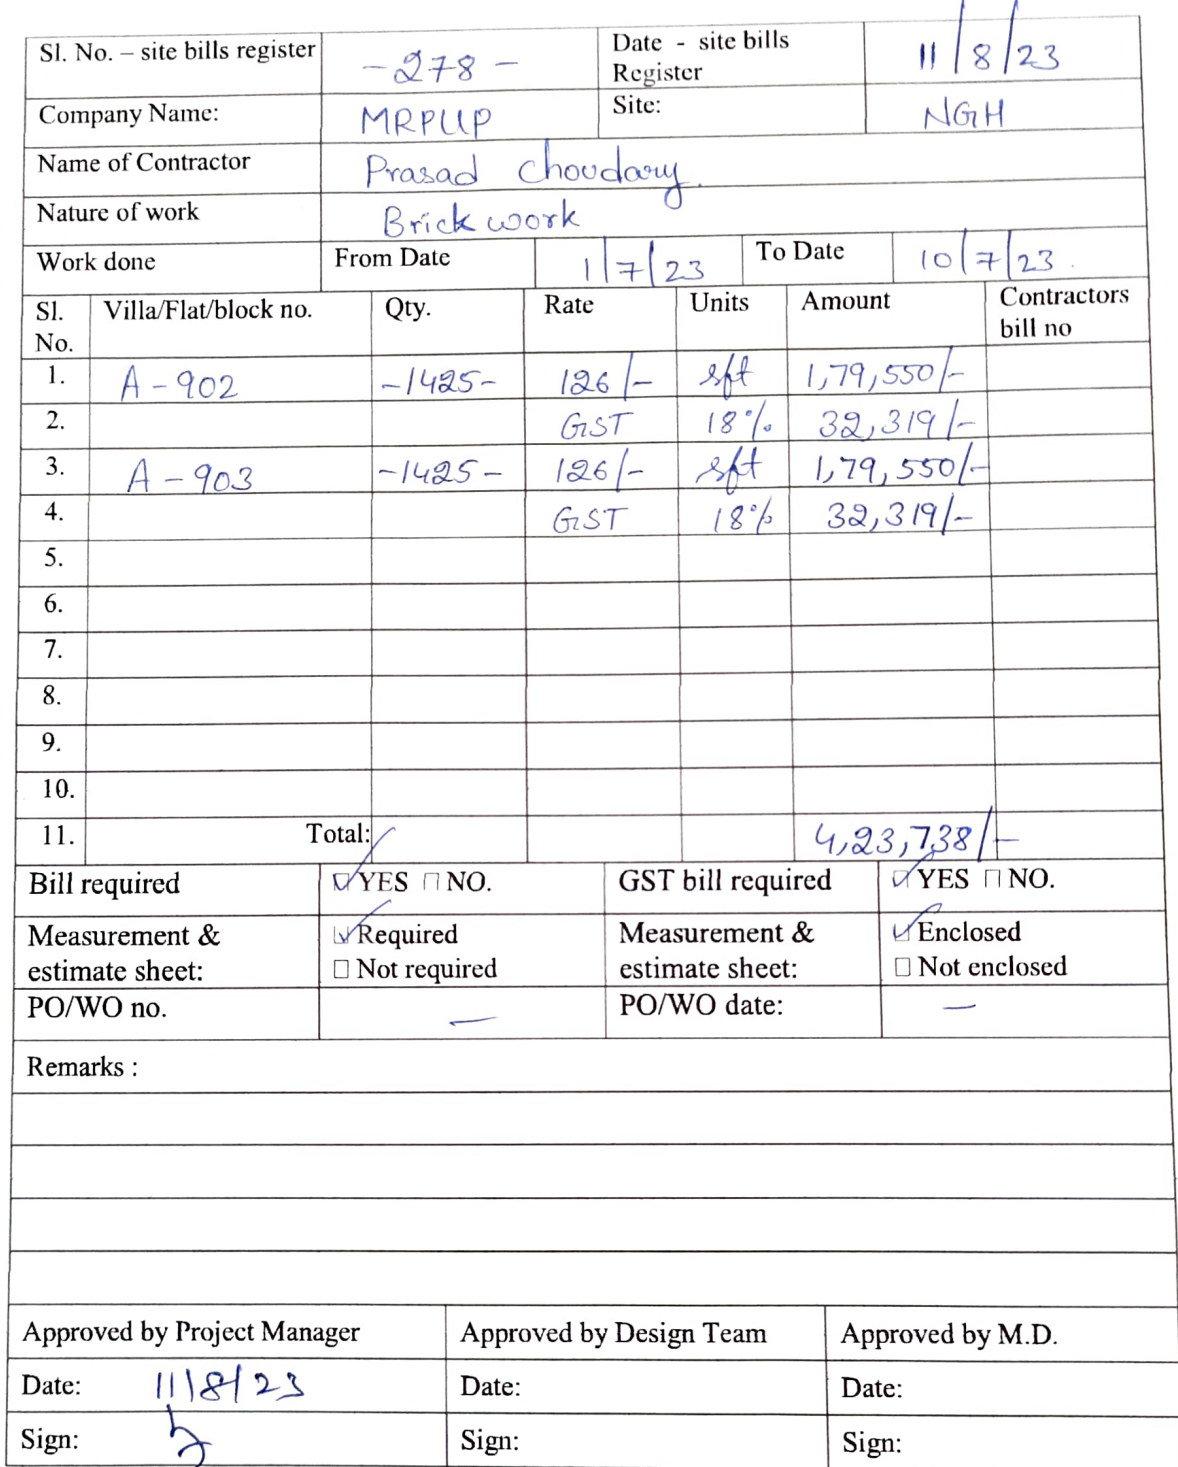 Sl. No. – site bills register -278- Date - site bills Register 11/8/23
Company Name: MRPUP Site: NGH
Name of Contractor Prasad Choudary.
Nature of work Brick work
Work done From Date 1/7/23 To Date 10/7/23.
Sl. No. Villa/Flat/block no. Qty. Rate Units Amount Contractors bill no
1. A-902 -1425- 126/- sft 1,79,550/-
2. GST 18% 32,319/-
3. A-903 -1425- 126/- sft 1,79,550/-
4. GST 18% 32,319/-
5.
6.
7.
8.
9.
10.
11. Total: 4,23,738/-
Bill required ☑YES ☐NO. GST bill required ☑YES ☐NO.
Measurement & estimate sheet: ☑Required ☐ Not required Measurement & estimate sheet: ☑Enclosed ☐ Not enclosed
PO/WO no. — PO/WO date: —
Remarks :
Approved by Project Manager Approved by Design Team Approved by M.D.
Date: 11/8/23 Date: Date:
Sign: Sign: Sign: